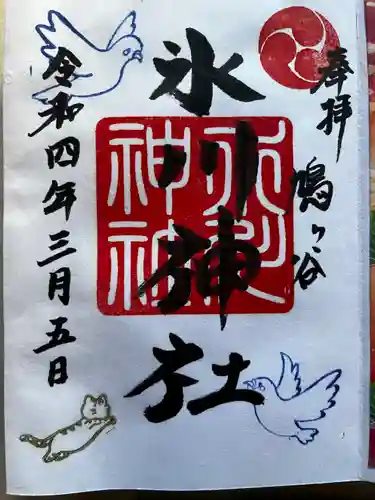 奉拝
鳩ヶ谷
氷川神社
氷川
神社
令和四年三月五日